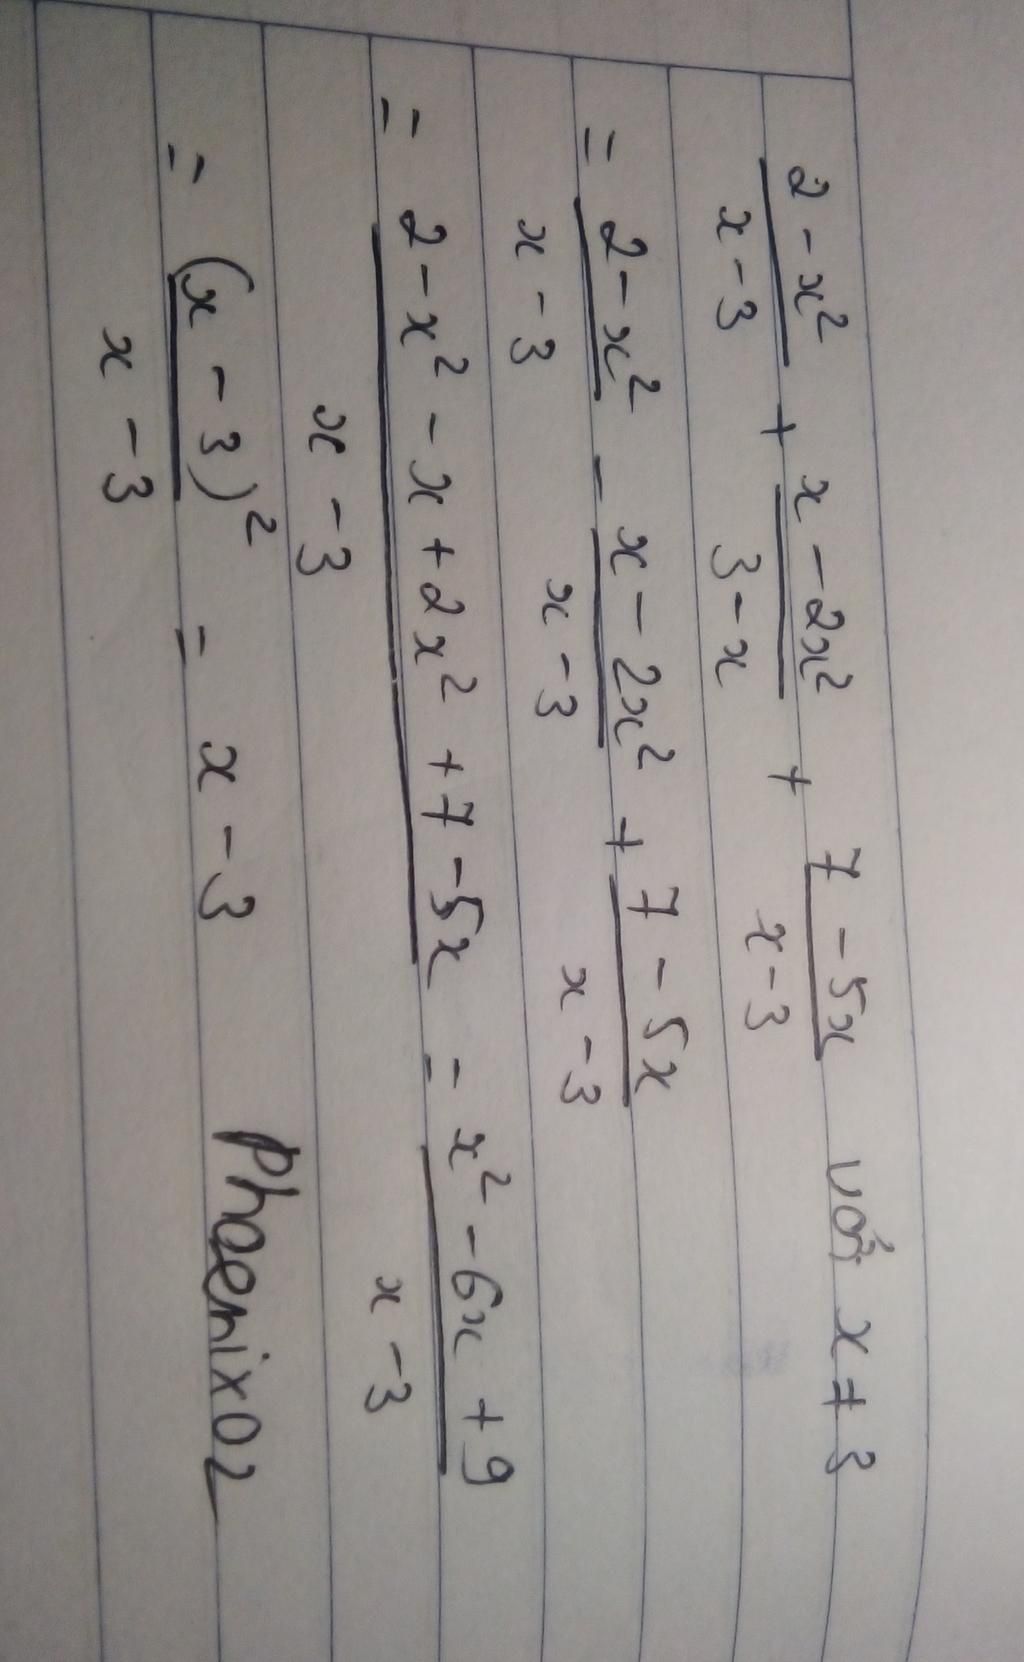 (2 - x²)/(x - 3) + (x - 2x²)/(3 - x) + (7 - 5x)/(x - 3) với x ≠ 3
= (2 - x²)/(x - 3) - (x - 2x²)/(x - 3) + (7 - 5x)/(x - 3)
= (2 - x² - x + 2x² + 7 - 5x)/(x - 3) = (x² - 6x + 9)/(x - 3)
= (x - 3)²/(x - 3) = x - 3 Phoenix02